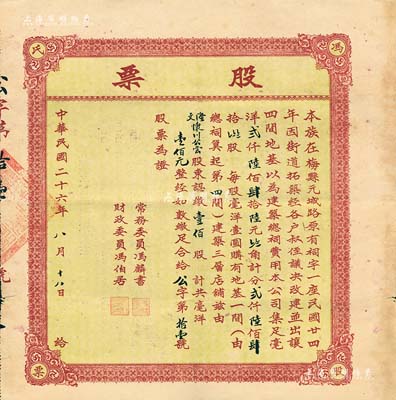 馮
氏
股票
本族在梅縣元城路原有祠宇一座民國廿四
年因街道拓築經各戶叔侄議決改建並出讓
四間地基以為建築總祠費用本公司集足毫
洋貳仟陸佰肆拾陸元計分貳仟陸佰肆
拾股每股毫洋壹圓購有地基一間(由
總祠巽起第四間)建築三層店舖茲由
股東認繳壹佰股計共毫洋
壹佰元整經如數繳足合給公字第拾壹號
股票為證
常務委員馮麟書
財政委員馮伯君
中華民國二十六年八月十八日給
股
票